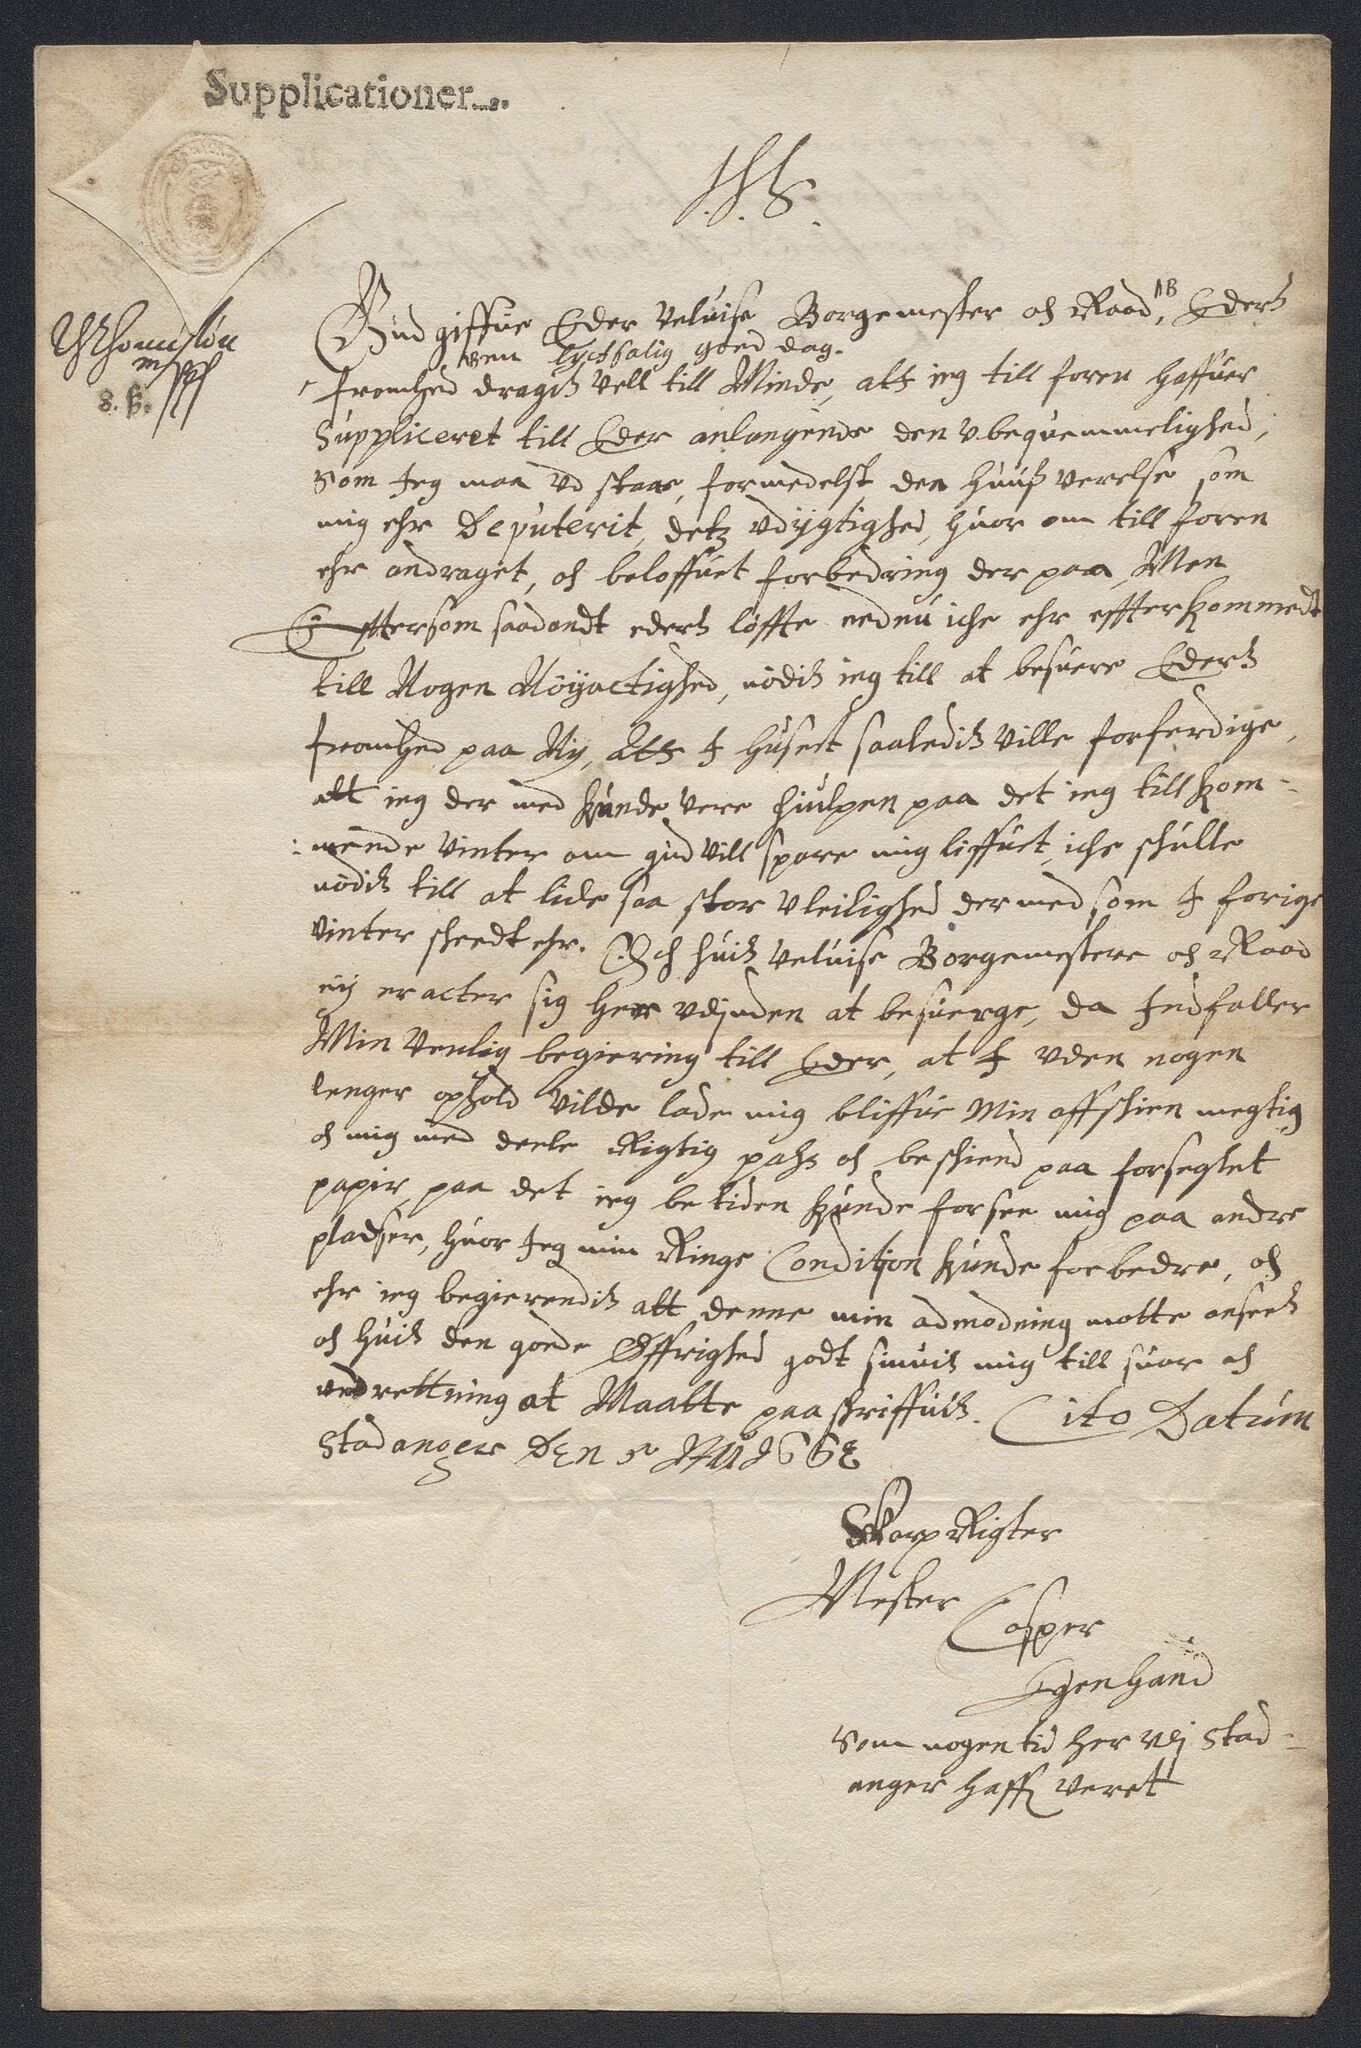 Supplicationer
J.H.S.
Gud giffue Eder Veluise Borgemester och Raad, NB Ederß
en lychsalig goed dag.
fromhed dragiß vell till Minde, att ieg till foren haffuer
Suppliceret till Eder anlangende den vbequemmelighed,
Som Jeg maa vd staae, formedelst den huuß verelse som
mig ehr Deputerit, detz vdÿgtighed, huor om till foren
ehr andraget, och beloffuet forbedring der paa, Men
Effttersom saadandt ederß løffte endnu iche ehr effterkommedt
till Nogen Nöÿactighed, nödiß ieg till at besuere Ederß
fromhed paa Nÿ, att I huset saalediß ville forferdige,
att ieg der med kunde vere hiulpen paa det ieg till kom-
mende vinter om gud vill spare mig liffuet, iche skulle
nödiß till at lide saa stor vleilighed dermed som I forige
vinter skeedt ehr. Och huiß veluise Borgemestere och Raad
eÿ eracter sig her vdjnden at besuerge, da Indfaller
Min venlig begiering till Eder, at I vden nogen
lenger ophold vilde lade mig bliffue Min affskien megtig
och mig med deele Rigtig paß och beskiend paa forseglet
papir, paa det ieg be tiden kunde forsee mig paa andre
pladser, huor Jeg min Ringe Condition kunde forbedre, och
ehr ieg begierendiß att denne min admodning motte anseeß
och huiß den goede Øffrighed godt siuniß mig till suar och
vnderettning at Maatte paaskriffuiß. Cito Datum
Stadanger Den
Skarp Rigter
Mester
Casper
Egenhand
Som nogen tid her vdj Stad-
anger haffr veret
8. ß.